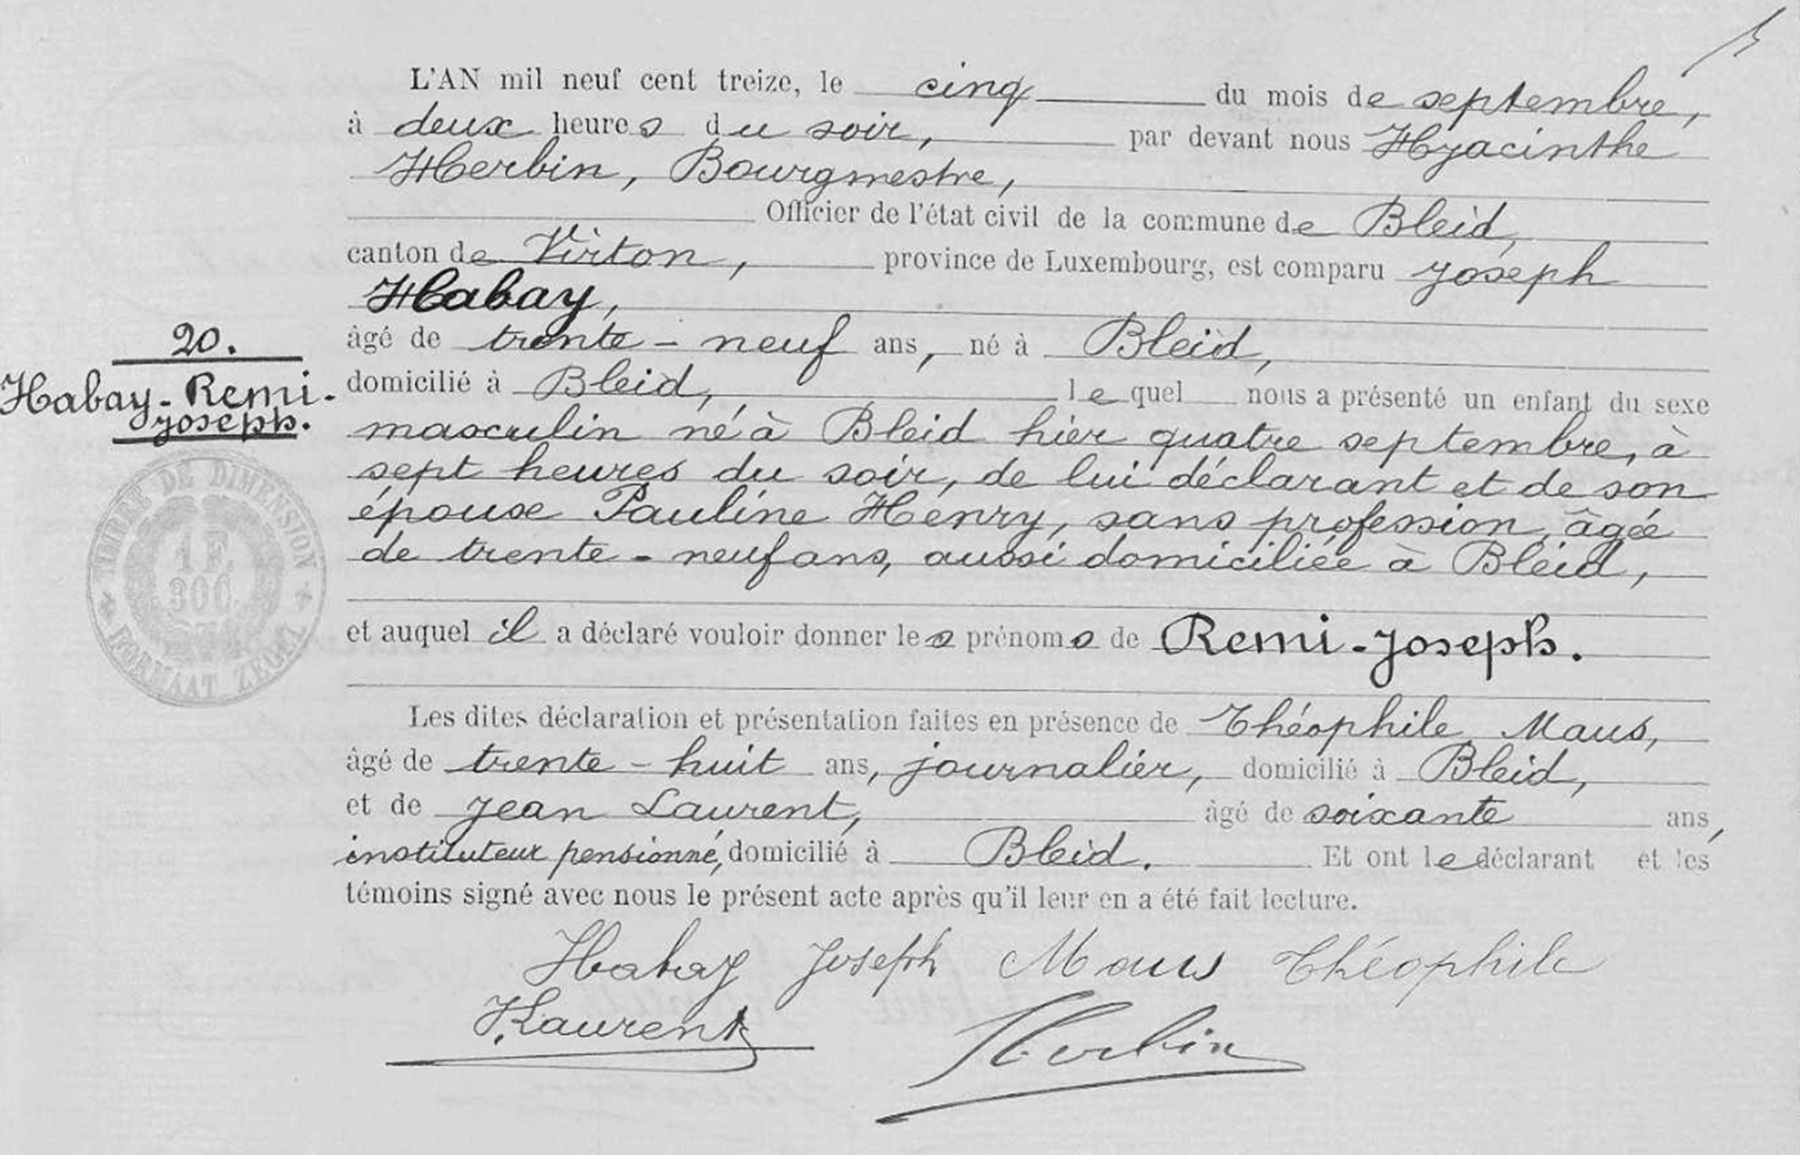 L'AN mil neuf cent treize, le cinq du mois de septembre,
à deux heures du soir, par devant nous Hyacinthe
Herbin, Bourgmestre,
Officier de l'état civil de la commune de Bleid,
canton de Virton, province de Luxembourg, est comparu Joseph
Habay,
âgé de trente-neuf ans, né à Bleid,
domicilié à Bleid, lequel nous a présenté un enfant du sexe
masculin né à Bleid hier quatre septembre, à
sept heures du soir, de lui déclarant et de son
épouse Pauline Henry, sans profession, âgée
de trente-neuf ans, aussi domiciliée à Bleid,
et auquel il a déclaré vouloir donner les prénoms de Remi-Joseph.
Les dites déclaration et présentation faites en présence de Théophile Maus,
âgé de trente-huit ans, journalier, domicilié à Bleid,
et de Jean Laurent, âgé de soixante ans,
instituteur pensionné, domicilié à Bleid. Et ont le déclarant et les
témoins signé avec nous le présent acte après qu'il leur en a été fait lecture.
Habay Joseph Maus Théophile
J. Laurent Herbin
20.
Habay-Remi-
Joseph.
TIMBRE DE DIMENSION
1 F.
30C.
FORMAAT ZEGEL